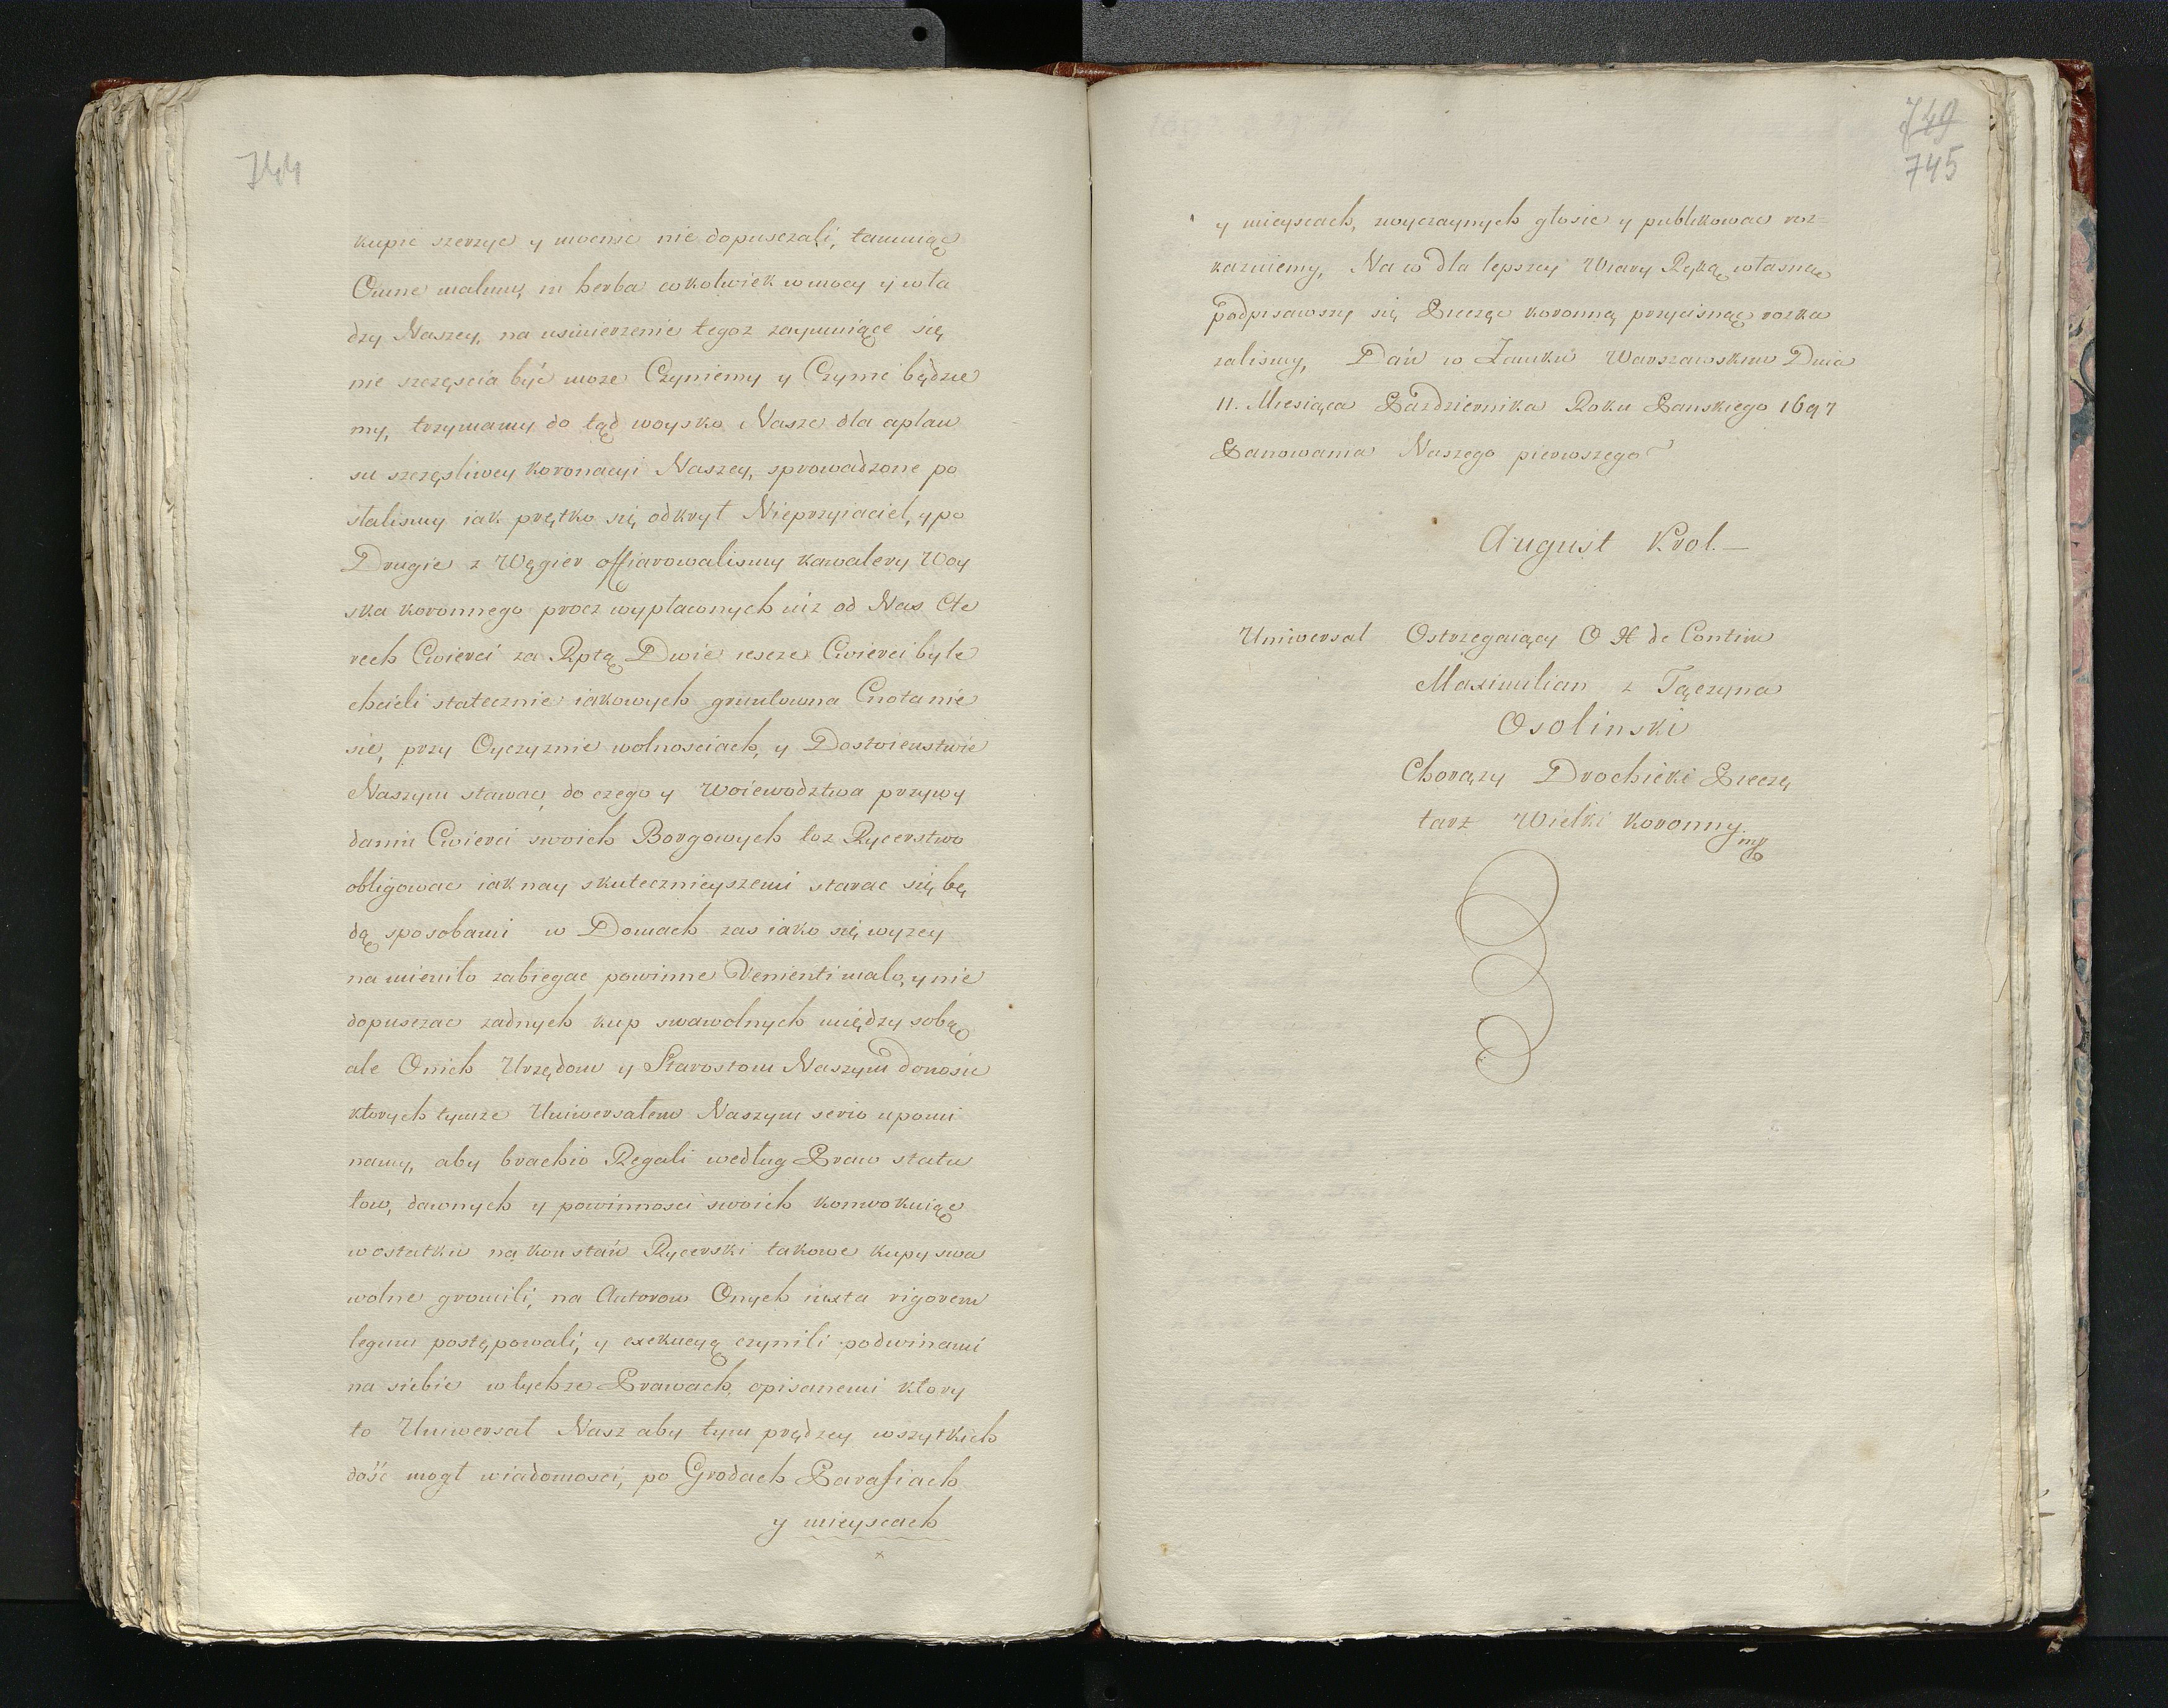 744
kupie szerzyc y mocnie nie dopuszczali, tamuiąc
Omne malum, in herba cokolwiek w mocy y wła
dzy Naszey, na usmierzenie tegoz zaymuiące się
nie szczęscia być moze Czyniemy y Czynić będzie
my, trzymamy do tąd woysko Nasze dla aplau
su szczęsliwey koronacyi Naszey, sprowadzone po
stalismy iak prętko się odkrył Nieprzyiaciel, y po
Drugie z Węgier offiarowalismy kawalery Woy
ska koronnego procz wypłaconych iuz od Nas Czte
rech Cwierci za Rptą Dwie ieszcze Cwierci byle
chcieli statecznie iakowych gruntowna Cnota nie
sie, przy Oyczyznie wolnosciach, y Dostoienstwie
Naszym stawac, do czego y Woiewodztwa przy wy
daniu Cwierci swoich Borgowych toz Rycerstwo
obligowac iak nay skutecznieyszemi starac się bę
dą sposobami w Domach zas iako się wyzey
na mieniło zabiegac powinne Venienti malo, y nie
dopuszczac zadnych kup swawolnych między sobą
ale Onich Urzędom y Starostom Naszym donosic
ktorych tymze Uniwersałem Naszym serio upomi
namy, aby brachio Regali według Praw statu
tow, dawnych y powinnosci swoich konwokuiąc
w ostatku na kon stań Rycerski takowe kupy swa
wolne gromili, na Autorow Onych iuxta rigorem
legum postępowali, y exekucyą czynili pod winami
na siebie w tychze Prawach, opisanemi ktory
to Uniwersał Nasz aby tym prędzey wszytkich
dość mogł wiadomosci, po Grodach Parafiach
y mieyscach
749
745
y mieyscach, zwyczaynych głosic y publikowac roz=
kazuiemy, Na co dla lepszey Wiary Ręką własną
podpisawszy się Pieczęc koronną przycisnąc rozka
zalismy, Dań w Zamku Warszawskim Dnia
11. Miesiąca Października Roku Panskiego 1697
Panowania Naszego pierwszego
August Krol. —
Uniwersał Ostrzegaiący O X de Contim
Maximilian z Tęczyna
Osolinski
Chorąży Drochicki Pieczę
tarz Wielki koronny
mp